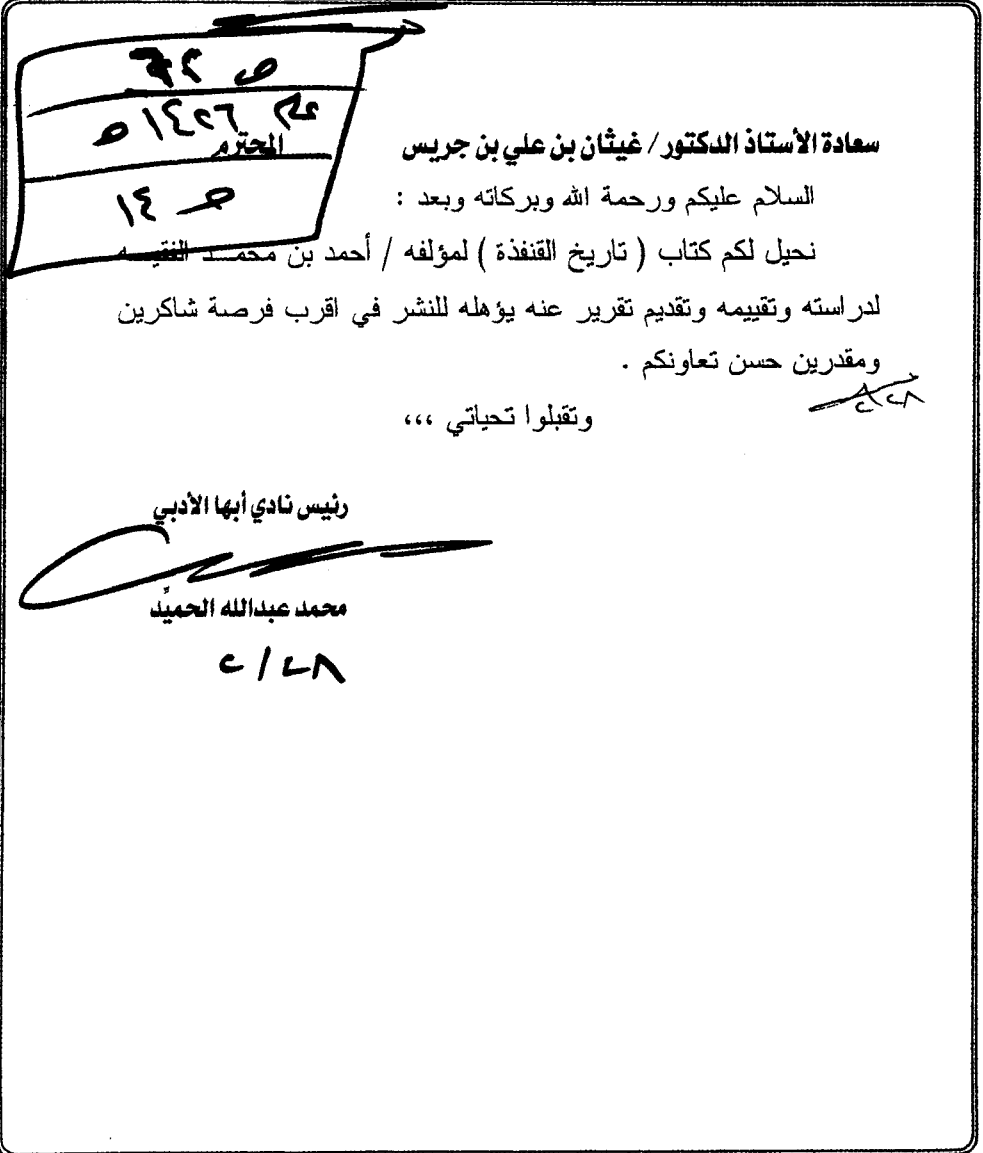 ص ٦٢
عام ١٤٢٦ ه
ح ١٤
سعادة الأستاذ الدكتور / غيثان بن علي بن جريس المحترم
السلام عليكم ورحمة الله وبركاته وبعد :
نحيل لكم كتاب ( تاريخ القنفذة ) لمؤلفه / أحمد بن محمد الفقيه
لدراسته وتقييمه وتقديم تقرير عنه يؤهله للنشر في اقرب فرصة شاكرين
ومقدرين حسن تعاونكم .
٢/٢٨
وتقبلوا تحياتي ،،،
رئيس نادي أبها الأدبي
محمد عبدالله الحميِّد
٢/٢٨